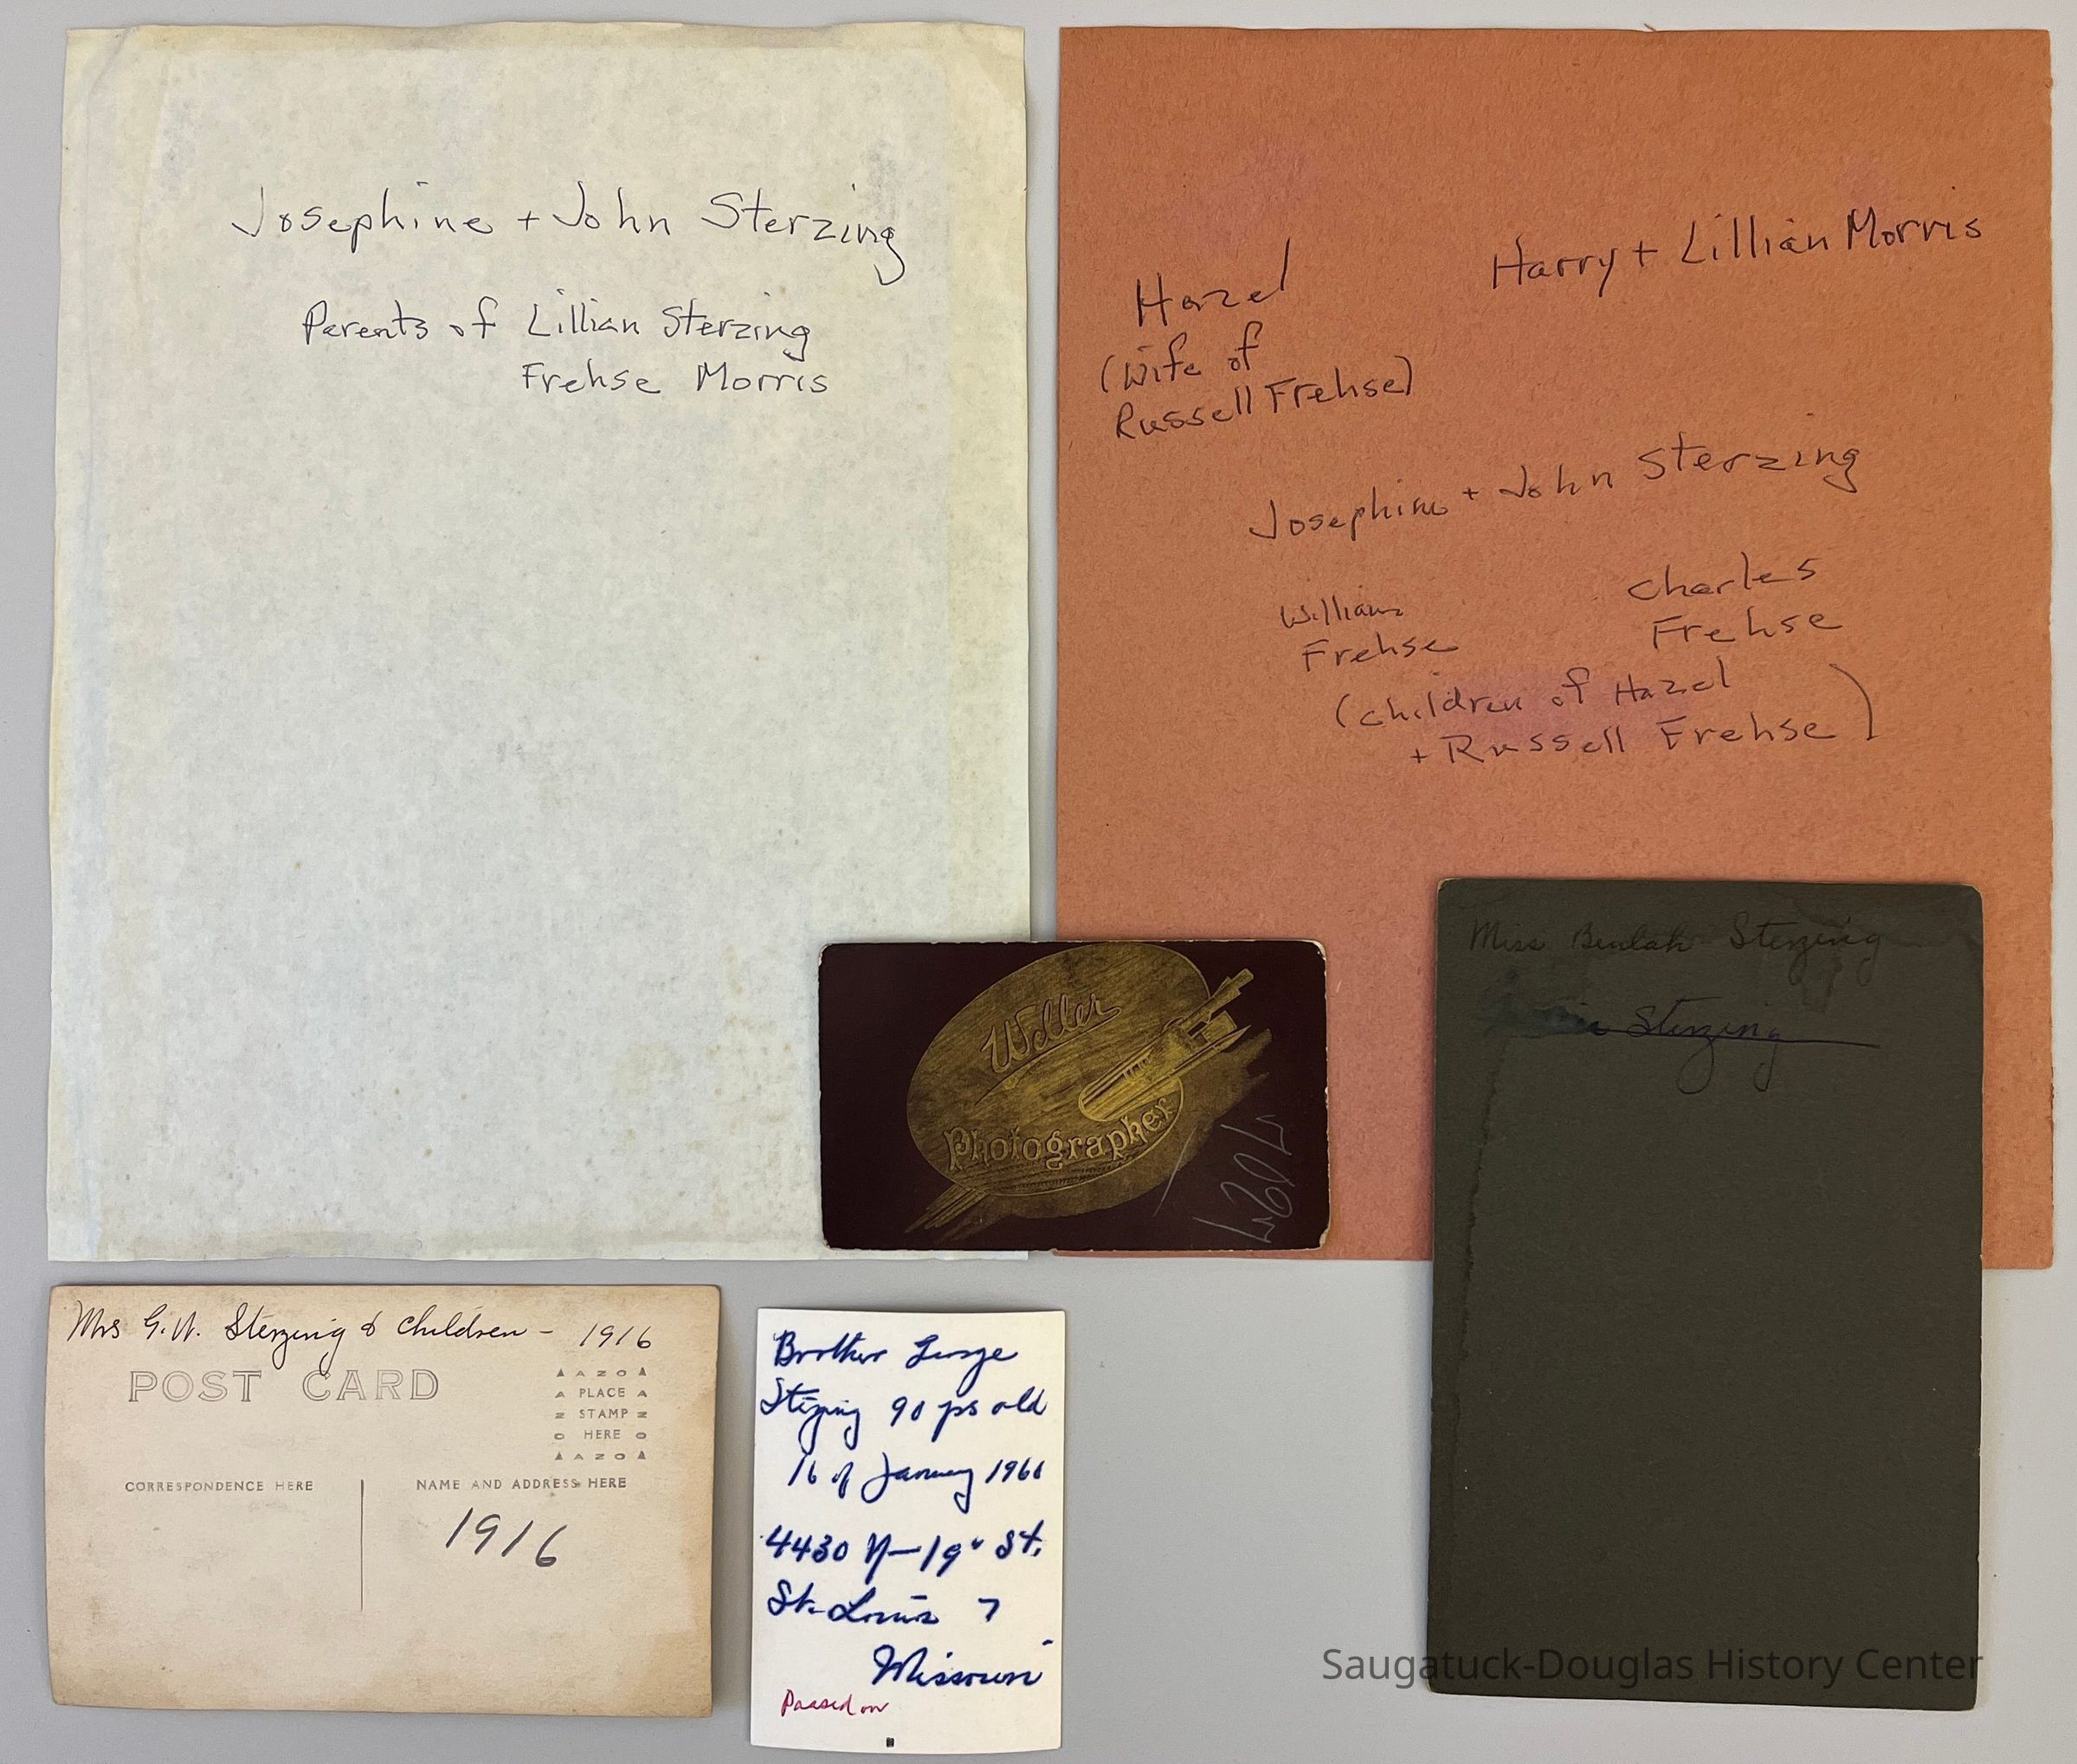 Josephine + John Sterzing
Parents of Lillian Sterzing
Frehse Morris
Harry + Lillian Morris
Hazel
(Wife of
Russell Frehse)
Josephine + John Sterzing
William
Frehse
Charles
Frehse
(children of Hazel
+ Russell Frehse)
Weller
Photographer
Miss Beulah Sterzing
Sterzing
Mrs G.W. Sterzing & children - 1916
POST CARD
AZO
PLACE
STAMP
HERE
AZO
CORRESPONDENCE HERE
NAME AND ADDRESS HERE
1916
Brother George
Sterzing 90 yrs old
16 of January 1960
4430 N-19th St.
St. Louis 7
Missouri
Passed on
Saugatuck-Douglas History Center